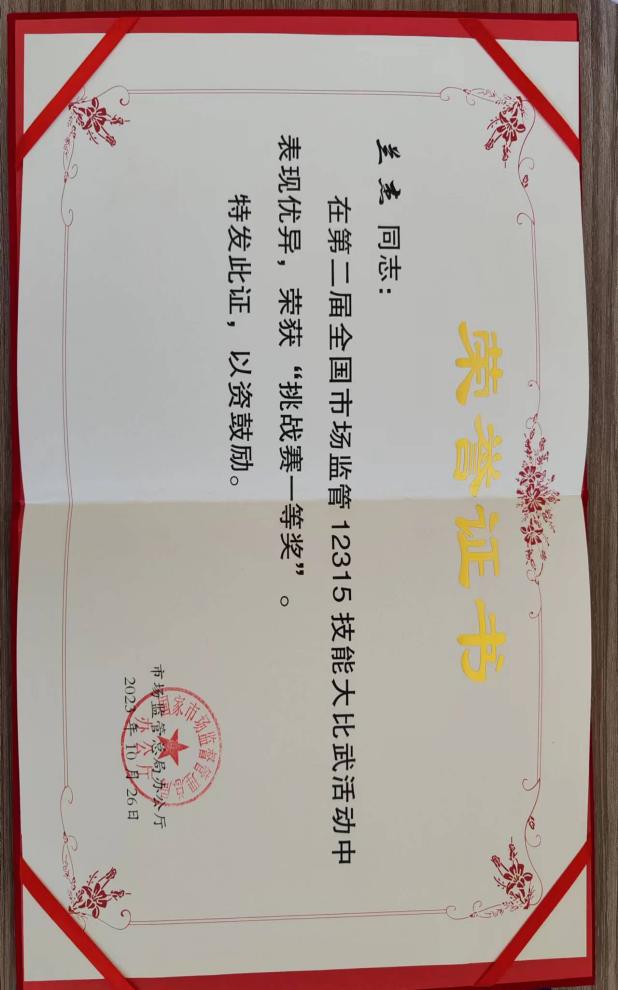 荣誉证书
兰杰 同志：
在第二届全国市场监管12315技能大比武活动中
表现优异，荣获“挑战赛一等奖”。
特发此证，以资鼓励。
市场监管总局办公厅
2023年10月26日
国家市场监督管理总局
办公厅